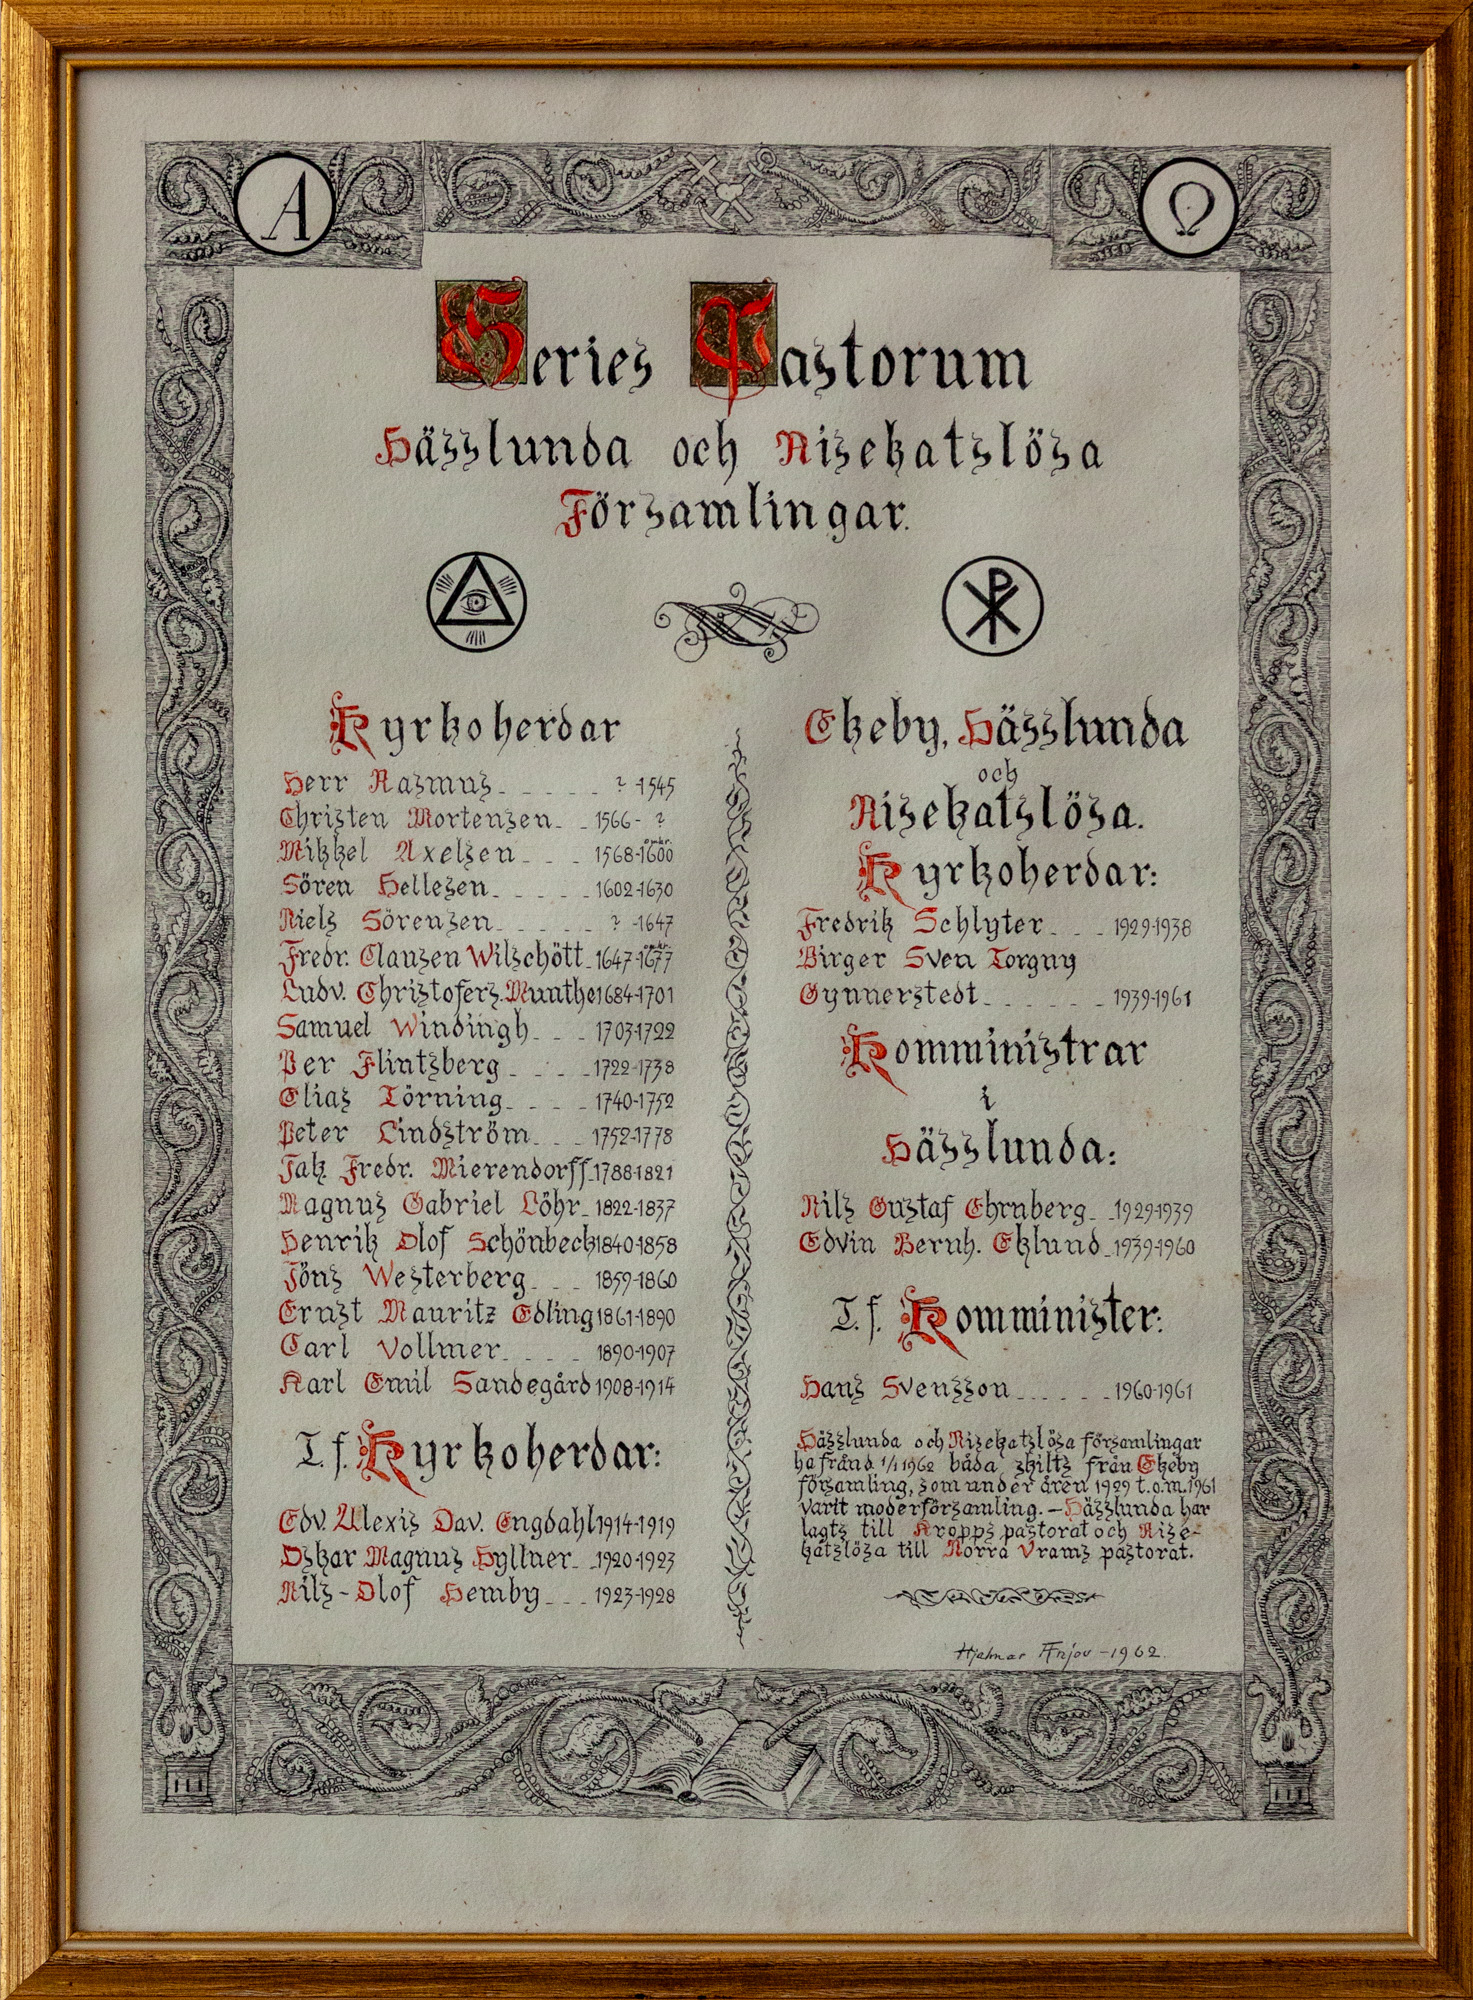 A
Ω
Series Pastorum
Hässlunda och Risekatslösa
Församlingar.
Kyrkoherdar
Herr Rasmus ? -1545
Christen Mortensen 1566- ?
Mikkel Axelsen 1568-1600 omkr.
Sören Hellesen 1602-1630
Niels Sörensen ? -1647
Fredr. Clausen Wilschött 1647-1677 omkr.
Ludv. Christofers. Munthe 1684-1701
Samuel Windingh 1703-1722
Per Flintsberg 1722-1738
Elias Törning 1740-1752
Peter Lindström 1752-1778
Jak. Fredr. Mierendorff 1788-1821
Magnus Gabriel Löhr 1822-1837
Henrik Olof Schönbeck 1840-1858
Jöns Westerberg 1859-1860
Ernst Mauritz Edling 1861-1890
Carl Vollmer 1890-1907
Karl Emil Sandegård 1908-1914
T. f. Kyrkoherdar:
Edv. Alexis Dav. Engdahl 1914-1919
Oskar Magnus Hyltner 1920-1923
Nils-Olof Hemby 1923-1928
Ekeby, Hässlunda
och
Risekatslösa.
Kyrkoherdar:
Fredrik Schlyter 1929-1938
Birger Sven Torgny
Gynnerstedt 1939-1961
Komministrar
i
Hässlunda:
Nils Gustaf Ehrnberg 1929-1939
Edvin Bernh. Eklund 1939-1960
T. f. Komminister:
Hans Svensson 1960-1961
Hässlunda och Risekatslösa församlingar
ha från d. 1/1 1962 båda skilts från Ekeby
församling, som under åren 1929 t.o.m. 1961
varit moderförsamling. – Hässlunda har
lagts till Kropps pastorat och Rise-
katslösa till Norra Vrams pastorat.
Hjalmar Anjou - 1962.